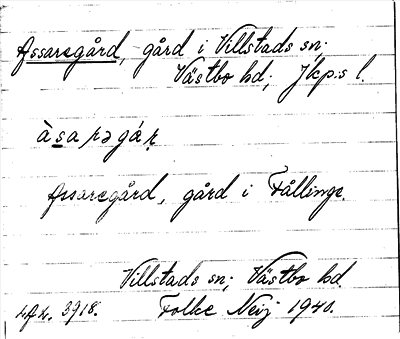 Assaregård, gård i Villstads sn;
Västbo hd; Jkp:s l.
àsarəgár
Assaregård, gård i Fållinge.
Villstads sn; Västbo hd.
3918. Folke Neij 1940.